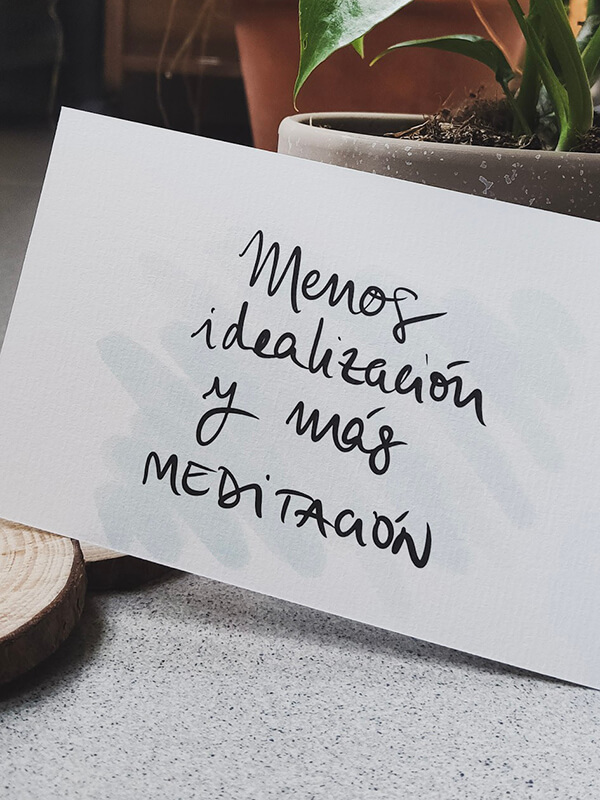 Menos
idealización
y más
MEDITACIÓN